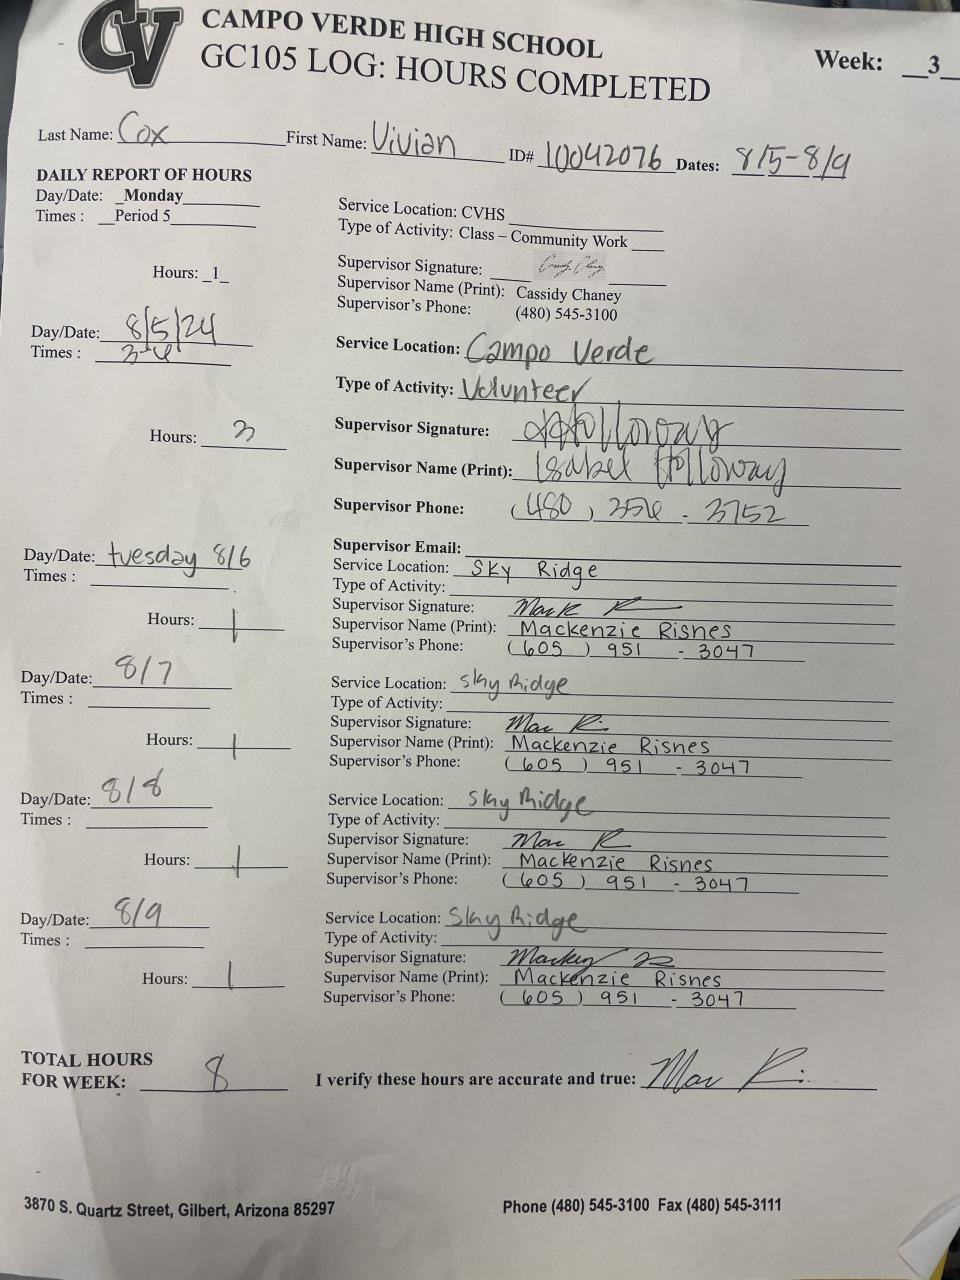 CV CAMPO VERDE HIGH SCHOOL
GC105 LOG: HOURS COMPLETED
Week: 3
Last Name: Cox First Name: Vivian ID# 10042076 Dates: 8/5-8/9
DAILY REPORT OF HOURS
Day/Date: Monday
Times : Period 5
Service Location: CVHS
Type of Activity: Class – Community Work
Hours: 1
Supervisor Signature: Cassidy Chaney
Supervisor Name (Print): Cassidy Chaney
Supervisor's Phone: (480) 545-3100
Day/Date: 8/5/24
Times : 3-6
Service Location: Campo Verde
Type of Activity: Volunteer
Hours: 3
Supervisor Signature: Holloway
Supervisor Name (Print): Isabel Holloway
Supervisor Phone: (480) 356 - 3752
Supervisor Email:
Day/Date: tuesday 8/6
Times :
Service Location: Sky Ridge
Type of Activity:
Hours: 1
Supervisor Signature:
Supervisor Name (Print): Mackenzie Risnes
Supervisor's Phone: (605) 951 - 3047
Day/Date: 8/7
Times :
Service Location: Sky Ridge
Type of Activity:
Hours: 1
Supervisor Signature:
Supervisor Name (Print): Mackenzie Risnes
Supervisor's Phone: (605) 951 - 3047
Day/Date: 8/8
Times :
Service Location: Sky Ridge
Type of Activity:
Hours: 1
Supervisor Signature:
Supervisor Name (Print): Mackenzie Risnes
Supervisor's Phone: (605) 951 - 3047
Day/Date: 8/9
Times :
Service Location: Sky Ridge
Type of Activity:
Hours: 1
Supervisor Signature:
Supervisor Name (Print): Mackenzie Risnes
Supervisor's Phone: (605) 951 - 3047
TOTAL HOURS
FOR WEEK: 8
I verify these hours are accurate and true:
3870 S. Quartz Street, Gilbert, Arizona 85297
Phone (480) 545-3100 Fax (480) 545-3111